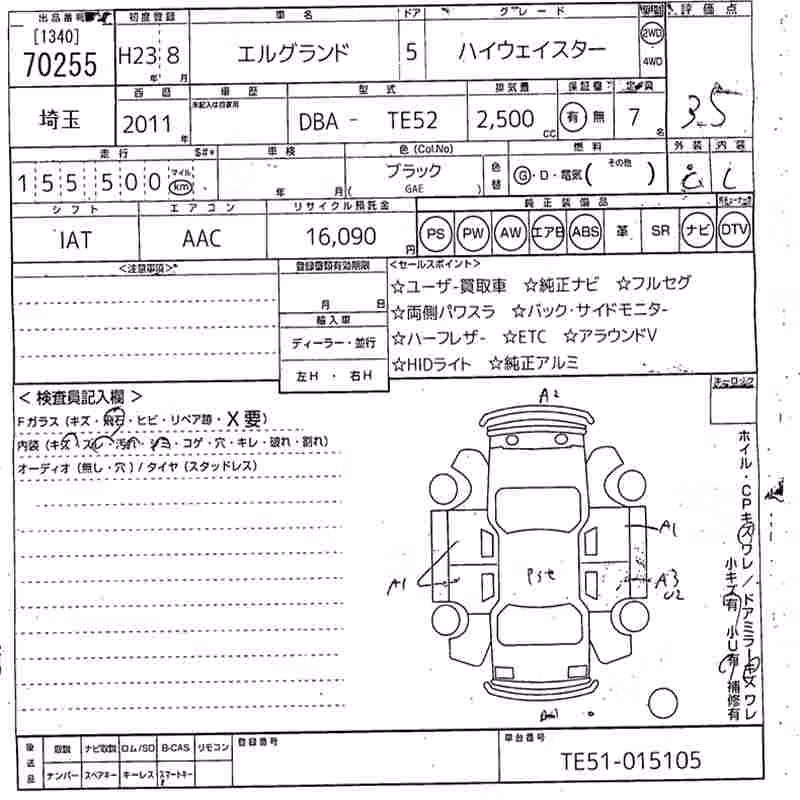 出品番号 初度登録 車名 ドア グレード 評価点
[1340]
70255 H23 8 エルグランド 5 ハイウェイスター 2WD 4WD 3.5
年 月
西暦 車歴 型式 排気量 保証書 定員
未記入は自家用
埼玉 2011年 DBA - TE52 2,500cc 有 無 7名
走行 $#* 車検 色(Col.No) 燃料 外装 内装
155500 マイル km 年 月 ブラック 色替 G・D・電気( その他 )
( GAE )
シフト エアコン リサイクル預託金 純正装備品
IAT AAC 16,090円 PS PW AW エアB ABS 革 SR ナビ DTV
<注意事項> 登録番号有効期限 <セールスポイント>
☆ユーザー買取車 ☆純正ナビ ☆フルセグ
月 日 ☆両側パワスラ ☆バック・サイドモニター
輸入車
ディーラー・並行 ☆ハーフレザー ☆ETC ☆アラウンドV
左H・右H ☆HIDライト ☆純正アルミ
<検査員記入欄>
Fガラス(キズ・飛石・ヒビ・リペア跡・X要)
内装(キズ・スレ・汚れ・シミ・コゲ・穴・キレ・破れ・割れ)
オーディオ(無し・穴)/タイヤ(スタッドレス)
A2
A1
A1
A3
U2
ホイル・CPキズワレ/ドアミラーキズワレ
小キズ有 小U有 補修有
後送品 取説 ナビ取説 ロム/SD B-CAS リモコン 登録番号 車台番号
ナンバー スペアキー キーレス スマートキー TE51-015105